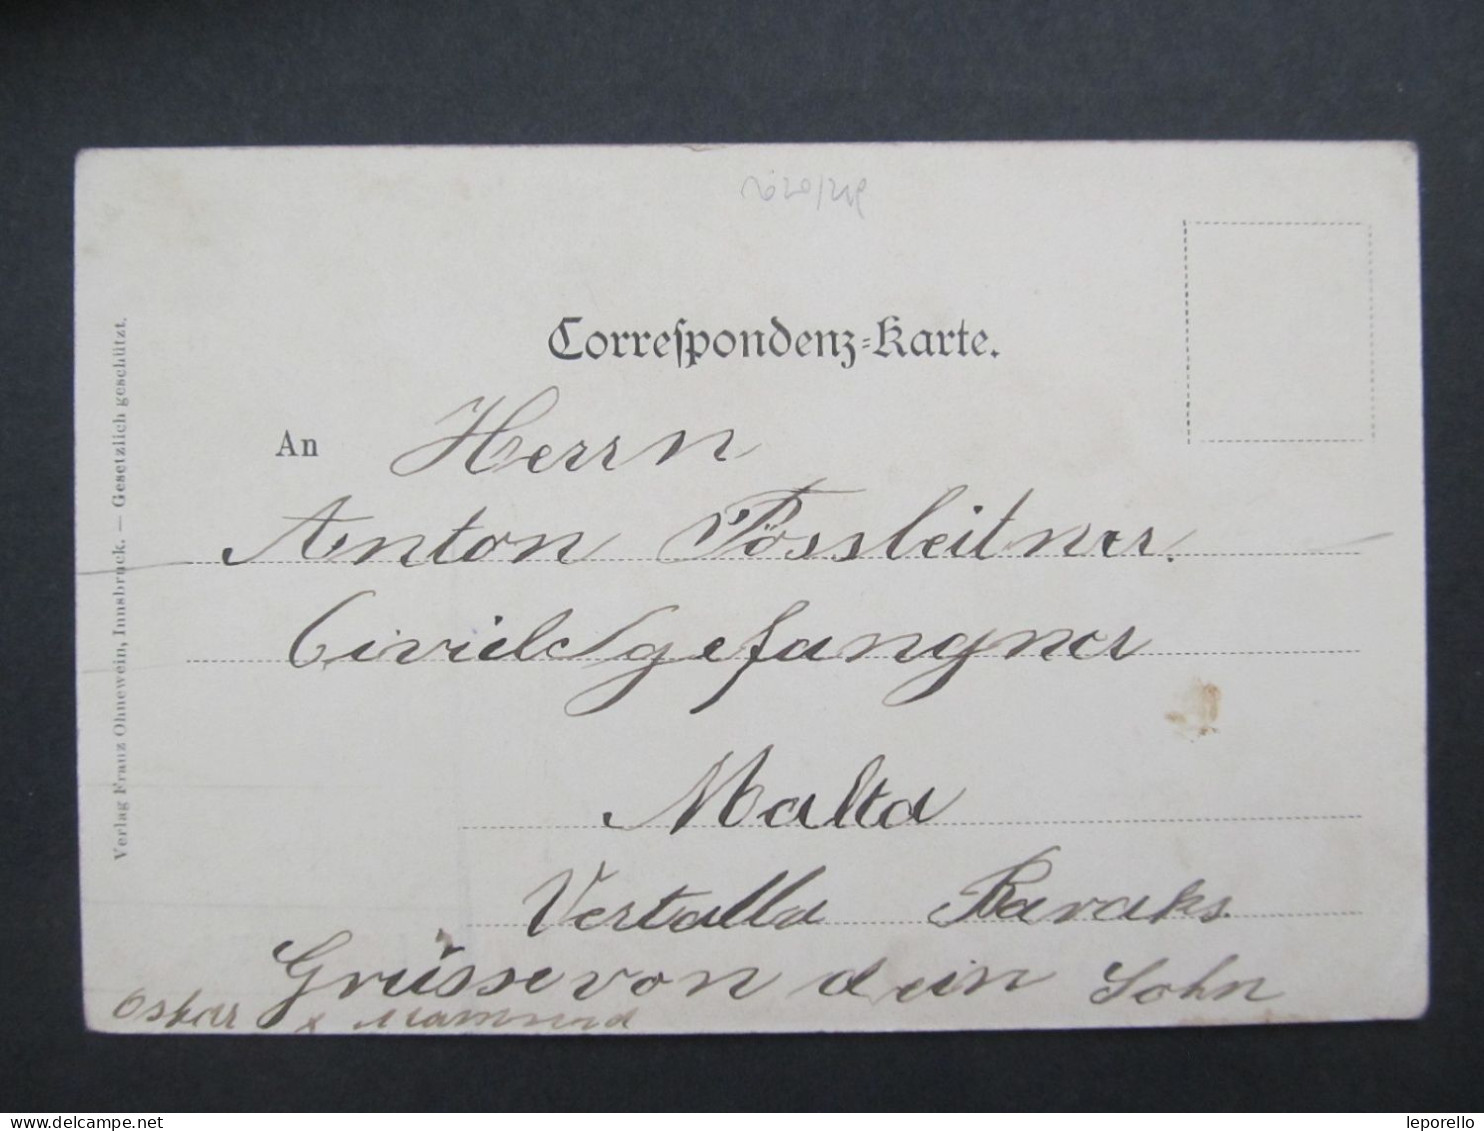 Correspondenz-Karte.
An Herrn
Anton Pössleitner.
Civilgefangner
Malta
Vertalla Baraks.
Grüsse von dein Sohn
Oskar &
Verlag Franz Ohnewein, Innsbruck. — Gesetzlich geschützt.
leporello